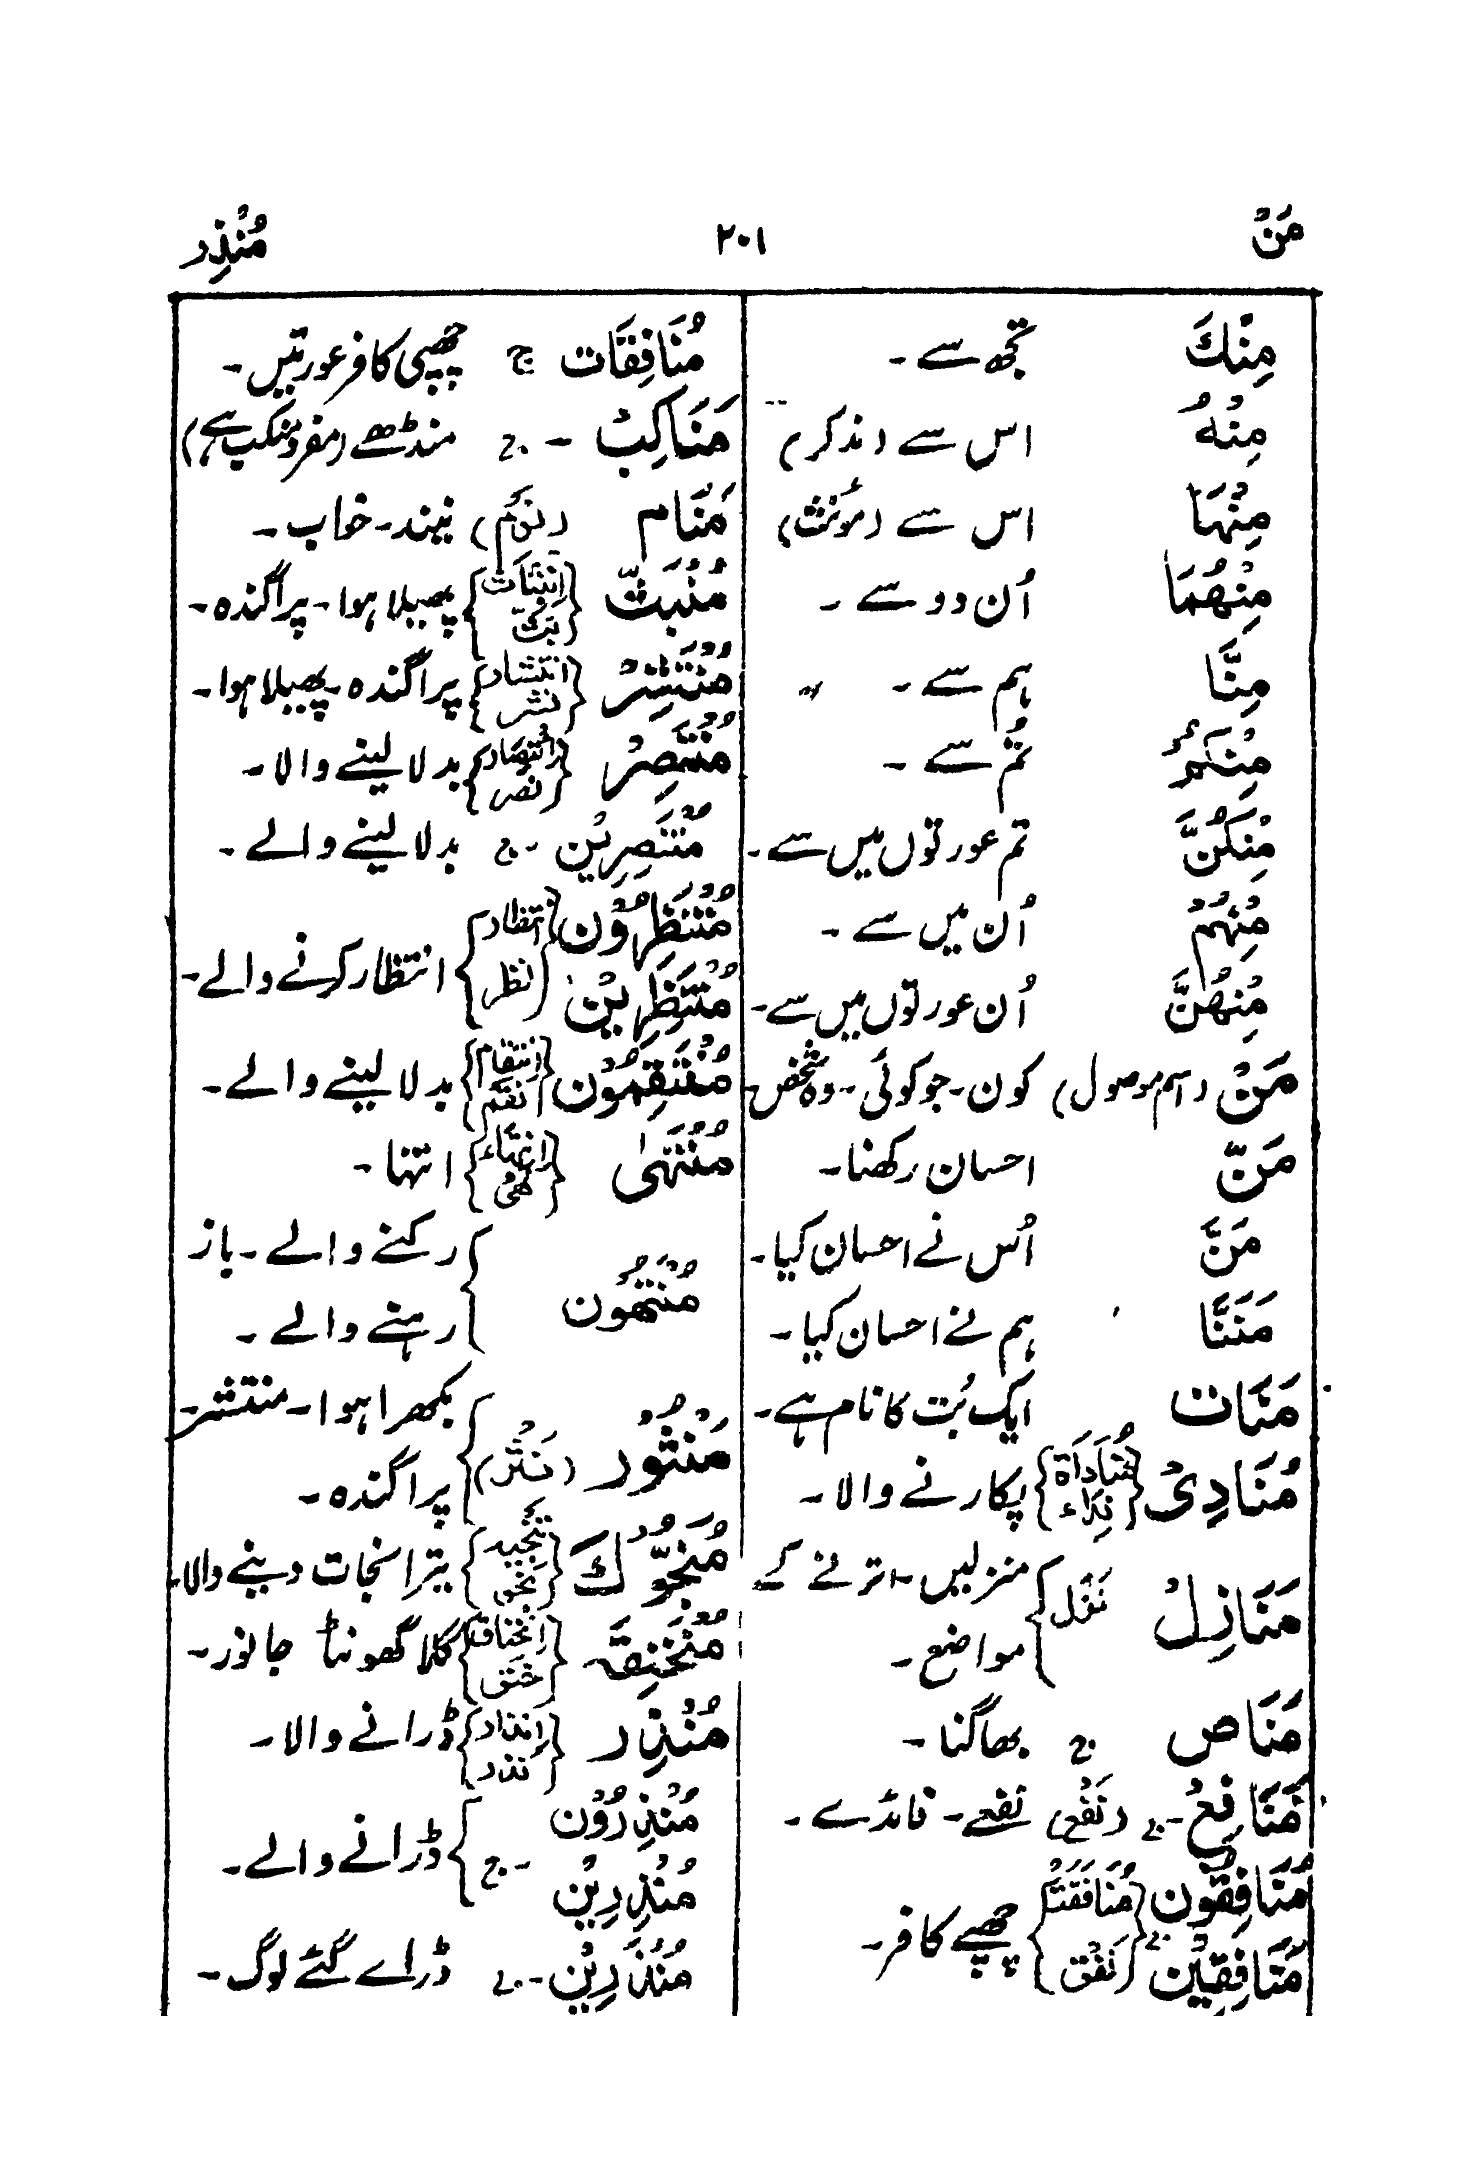 مَنْ ۲۰۱ مُنْذِر
مِنْكَ تجھ سے ۔
مِنْهُ اس سے (مذکر)
مِنْهَا اس سے (مونث)
مِنْهُمَا اُن دو سے ۔
مِنَّا ہم سے ۔ 〃
مِنْكُمْ تُم سے ۔
مِنْكُنَّ تم عورتوں میں سے ۔
مِنْهُمْ اُن میں سے ۔
مِنْهُنَّ اُن عورتوں میں سے ۔
مَنْ (اسم موصول) کون ۔ جو کوئی ۔ وہ شخص ۔
مَنّ احسان رکھنا ۔
مَنَّ اُس نے احسان کیا ۔
مَنَنَّا ہم نے احسان کیا ۔
مَنَات ایک بُت کا نام ہے ۔
مُنَادِیْ {مُنَادَاة نِدَاء} پکارنے والا ۔
مَنَازِلْ نَزَل} منزلیں ۔ اترنے کے
مواضع ۔
مَنَاص ج بھاگنا ۔
مَنَافِعُ ۔ ج (نَفْع) نفعے ۔ فائدے ۔
مُنَافِقُون {مُنَافَقَتَ
مُنَافِقِيْن ج نَفْق} چھپے کافر ۔
مُنَافِقَات ج چھپی کافر عورتیں ۔
مَنَاكِبْ ۔ ج منڈھے (مفرد منکب ہے)
مَنَام (نوم) نیند ۔ خواب ۔
مُنْبَثّ {اِنْبِثَاث بَثّ} پھیلا ہوا ۔ پراگندہ ۔
مُنْتَشِرْ {انتشار نشر} پراگندہ ۔ پھیلا ہوا ۔
مُنْتَصِرْ {انتصار نصر} بدلا لینے والا ۔
مُنْتَصِرِيْن ۔ ج بدلا لینے والے ۔
مُنْتَظِرُوْن {انتظار
مُنْتَظِرِيْن نظر} انتظار کرنے والے ۔
مُنْتَقِمُوْن {اِنْتِقَام نَقَم} بدلا لینے والے ۔
مُنْتَهٰى {اِنْتِهَاء نَهْى} انتہا ۔
مُنْتَهُون } رکنے والے ۔ باز
رہنے والے ۔
مَنْثُوْر (نَثْر) } بکھرا ہوا ۔ منتشر ۔
پراگندہ ۔
مُنَجُّوْكَ {تنجيه نجو} تیرا نجات دینے والا ۔
مُنْخَنِقَه {اِنْخِنَاق خنق} گلا گھونٹا جانور ۔
مُنْذِر {اِنْذَار نذر} ڈرانے والا ۔
مُنْذِرُوْن
مُنْذِرِيْن ۔ ج } ڈرانے والے ۔
مُنْذَرِيْن ۔ ج ڈرائے گئے لوگ ۔